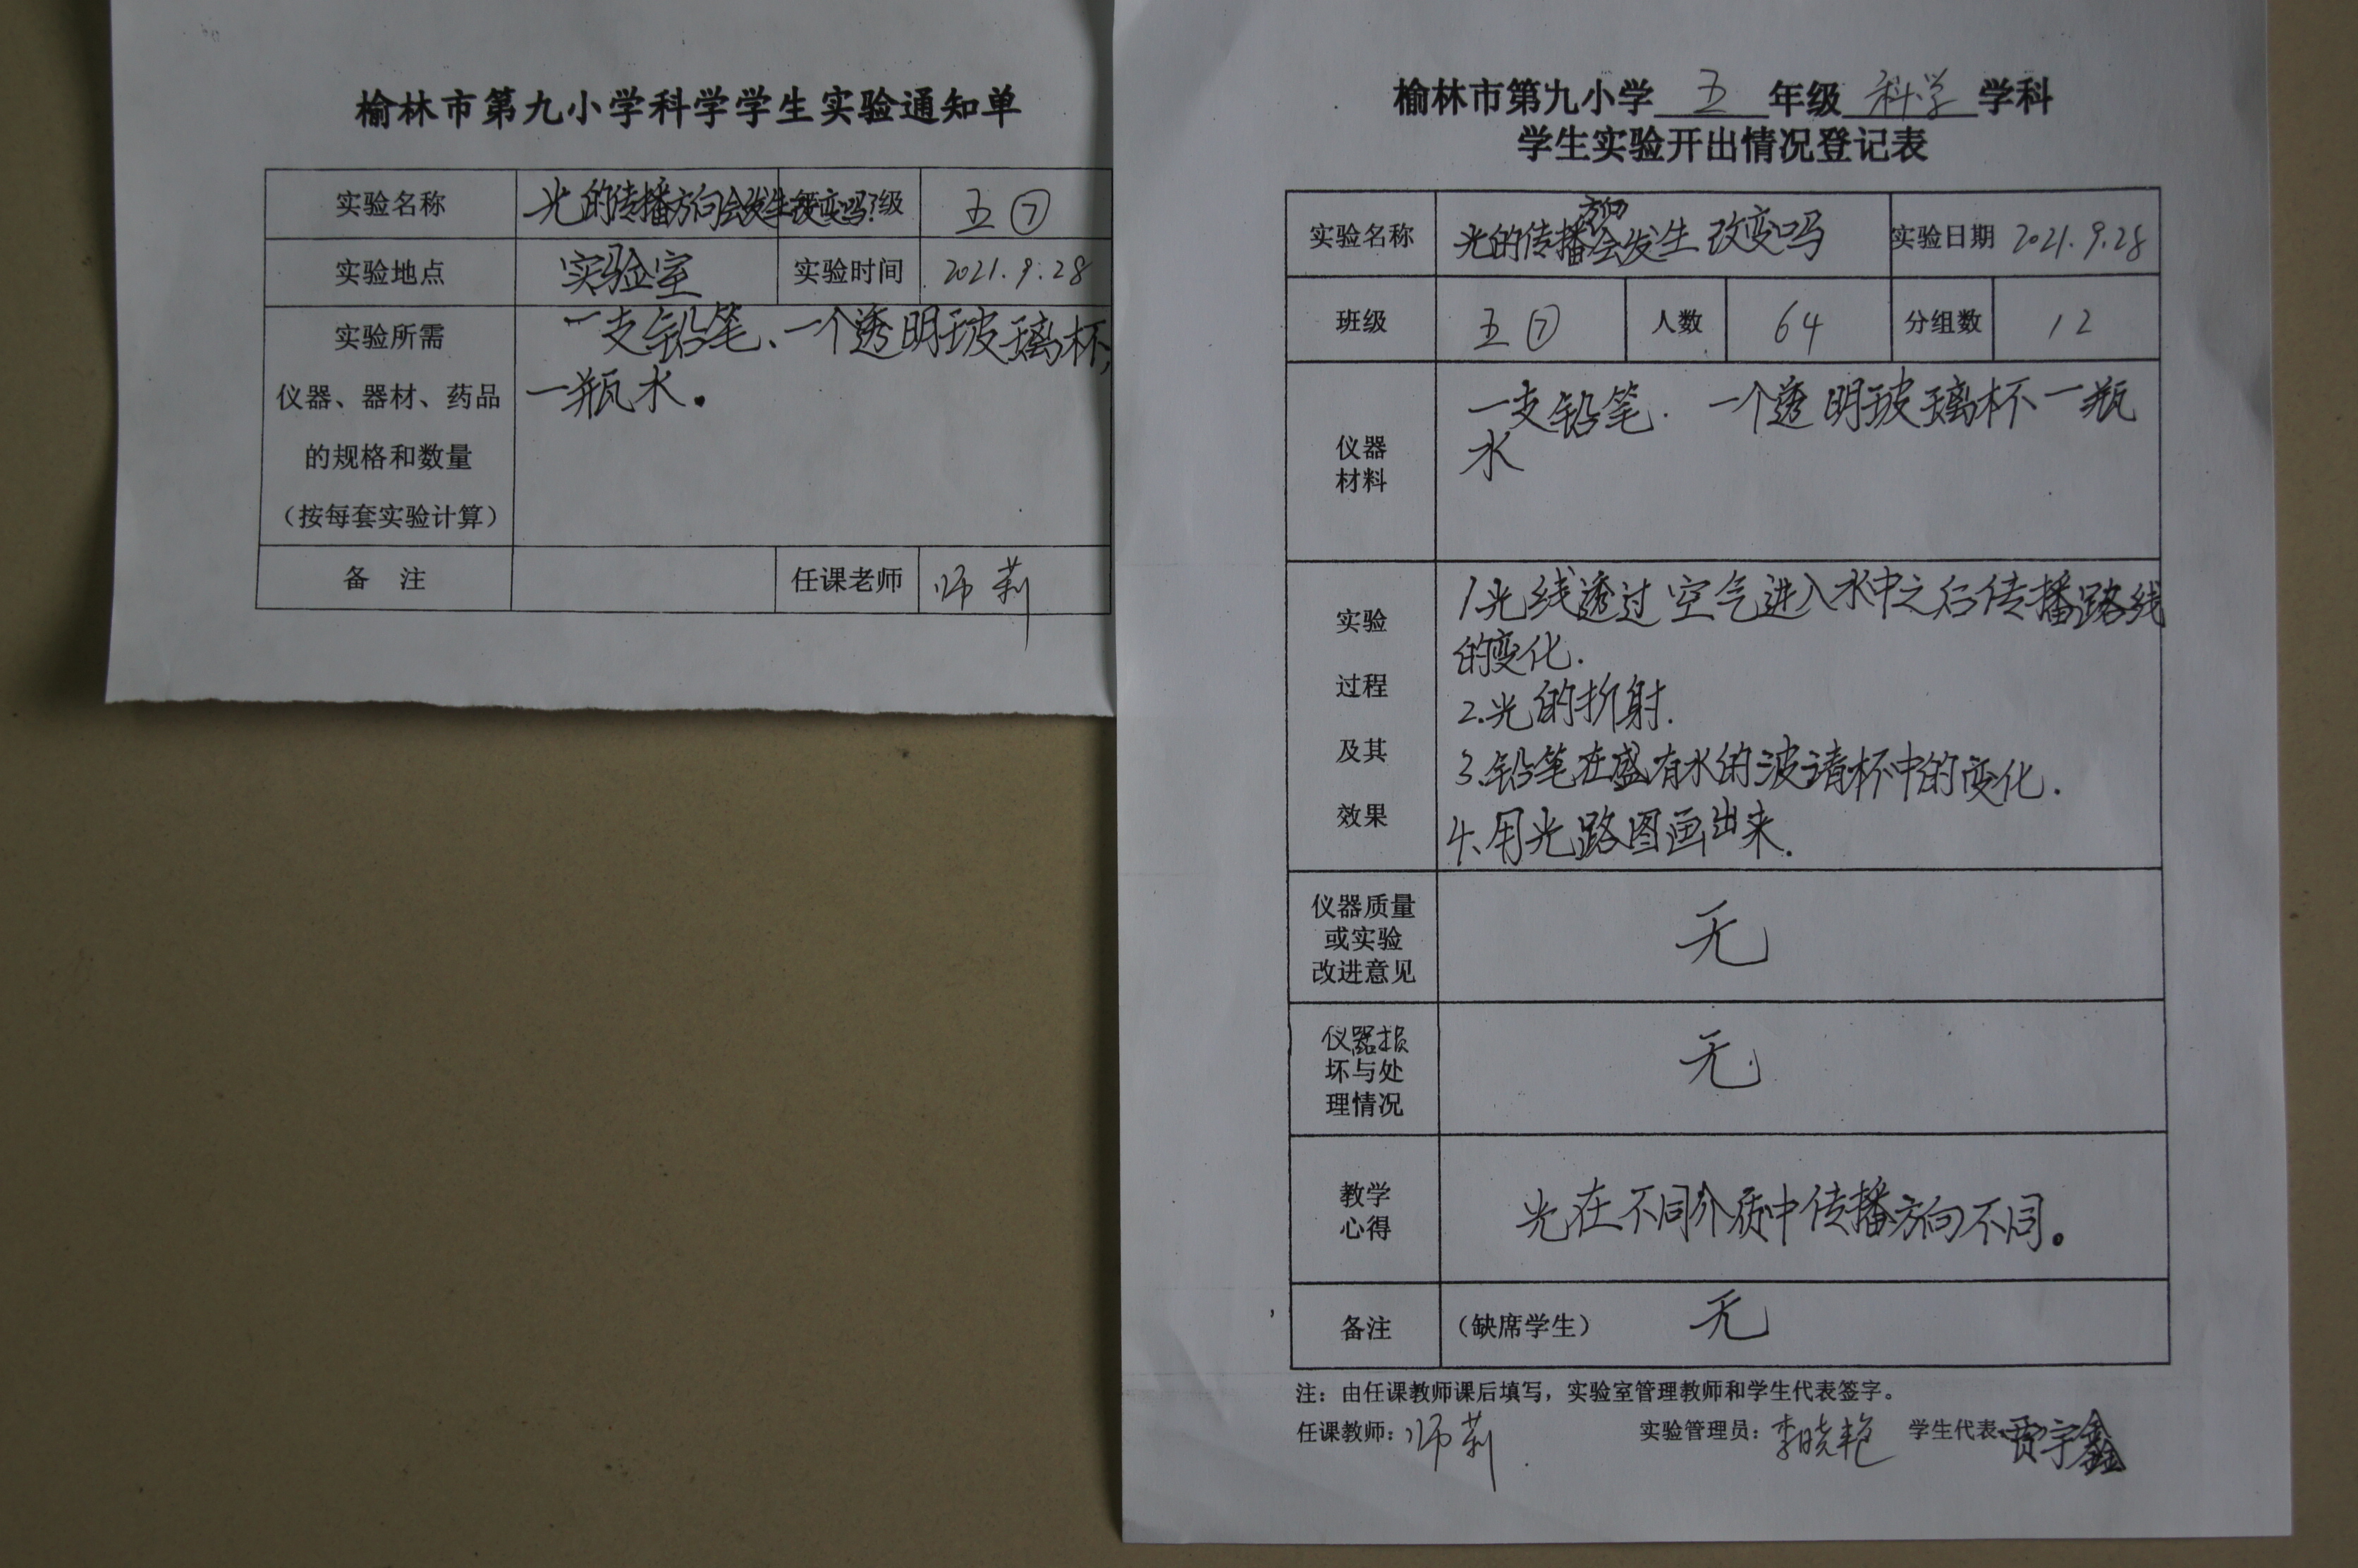 榆林市第九小学科学学生实验通知单
实验名称 光的传播方向会发生改变吗? 级 五⑦
实验地点 实验室 实验时间 2021.9.28
实验所需 一支铅笔、一个透明玻璃杯,
仪器、器材、药品 一瓶水.
的规格和数量
（按每套实验计算）
备 注 任课老师 师莉
榆林市第九小学 五 年级 科学 学科
学生实验开出情况登记表
实验名称 光的传播方向会发生改变吗 实验日期 2021.9.28
班级 五⑦ 人数 64 分组数 12
仪器
材料
一支铅笔. 一个透明玻璃杯一瓶
水
实验
过程
及其
效果
1.光线透过空气进入水中之后传播路线
的变化.
2.光的折射.
3.铅笔在盛有水的波璃杯中的变化.
4.用光路图画出来.
仪器质量
或实验
改进意见
无
仪器损
坏与处
理情况
无
教学
心得
光在不同介质中传播方向不同。
备注 （缺席学生） 无
注：由任课教师课后填写，实验室管理教师和学生代表签字。
任课教师：师莉 实验管理员：李晓艳 学生代表 贾宇鑫